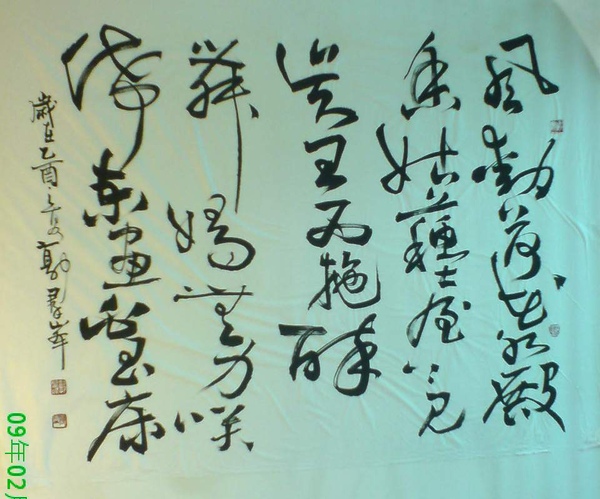 風動荷花水殿
香姑蘇臺上見
吴王西施醉
舞嬌無力笑
倚東窗白玉床
歲在乙酉之夏
09年02